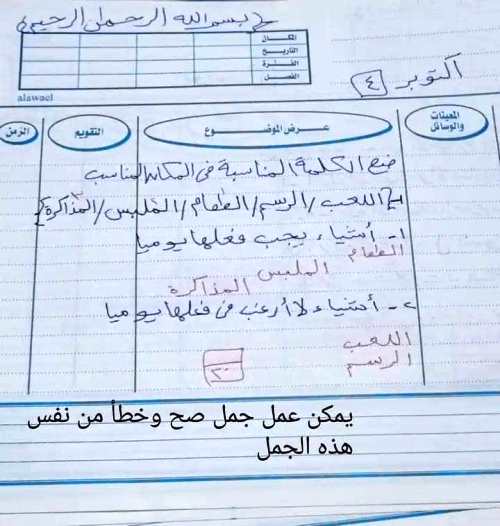 ﴿بسم الله الرحمن الرحيم﴾
المكان
التاريخ
الفترة
الفصل
alawael
أكتوبر ٤
المعينات والوسائل
عرض الموضوع
التقويم
الزمن
ضع الكلمة المناسبة في المكان المناسب
{اللعب / الرسم / الطعام / الملبس / المذاكرة}
١- أشياء يجب فعلها يوميا
الطعام الملبس المذاكرة
٢- أشياء لا أرغب من فعلها يوميا
اللعب
الرسم
يمكن عمل جمل صح وخطأ من نفس
هذه الجمل